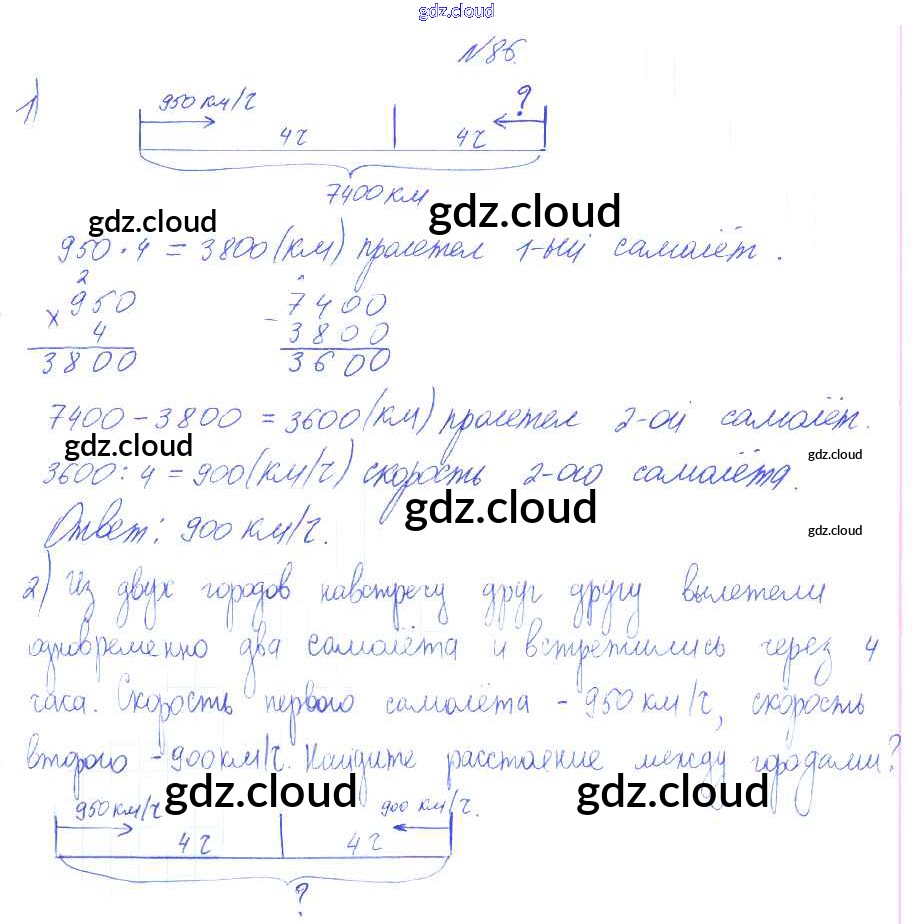 gdz.cloud
№86.
1)
950 км/ч ?
4ч 4ч
7400 км
gdz.cloud gdz.cloud
950 · 4 = 3800 (км) пролетел 1-ый самолёт.
2
× 950 - 7400
4 3800
3800 3600
7400 - 3800 = 3600 (км) пролетел 2-ой самолёт.
gdz.cloud gdz.cloud
3600 : 4 = 900 (км/ч) скорость 2-ого самолёта.
gdz.cloud
Ответ: 900 км/ч.
gdz.cloud
2) Из двух городов навстречу друг другу вылетели
одновременно два самолёта и встретились через 4
часа. Скорость первого самолёта - 950 км/ч, скорость
второго - 900 км/ч. Найдите расстояние между городами?
gdz.cloud gdz.cloud
950 км/ч 900 км/ч.
4ч 4ч
?